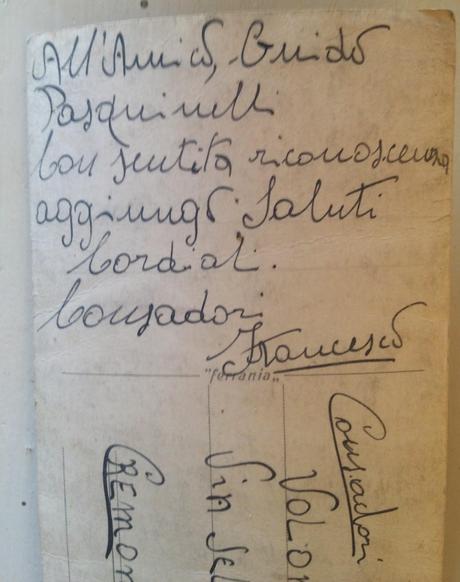 All'Amico, Guido
Pasquinelli
Con sentita riconoscenza
aggiungo Saluti
Cordiali.
Consadori
Francesco
"ferrania"
Consadori
Via Sel
CREMON